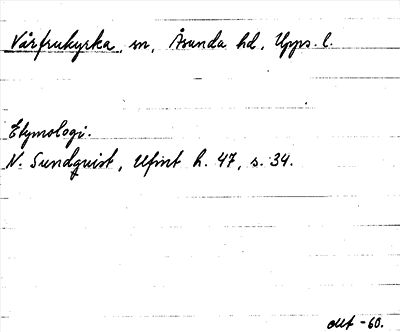 Vårfrukyrka, sn, Åsunda hd, Upps. l.
Etymologi.
N. Sundquist, Ufmt h. 47, s. 34.
okt -60.